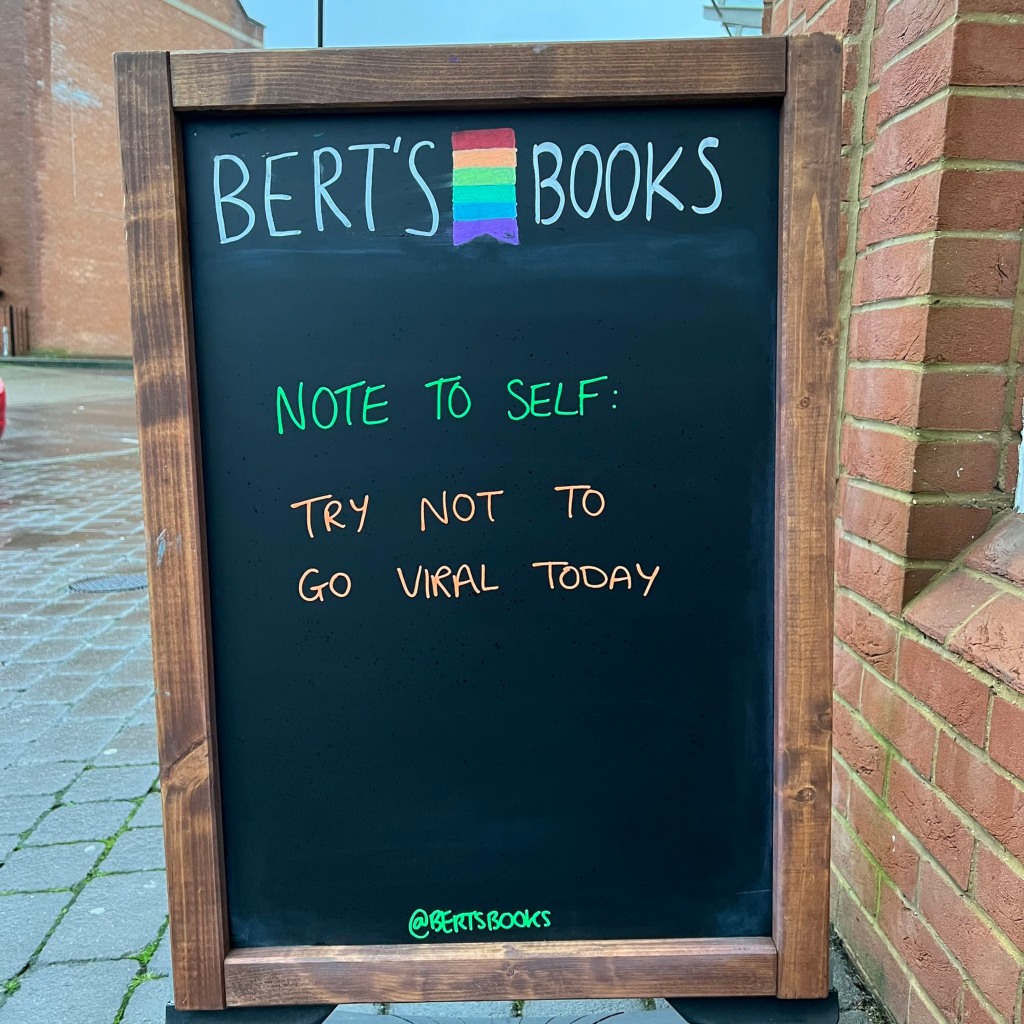 BERT'S BOOKS
NOTE TO SELF:
TRY NOT TO
GO VIRAL TODAY
@BERTSBOOKS